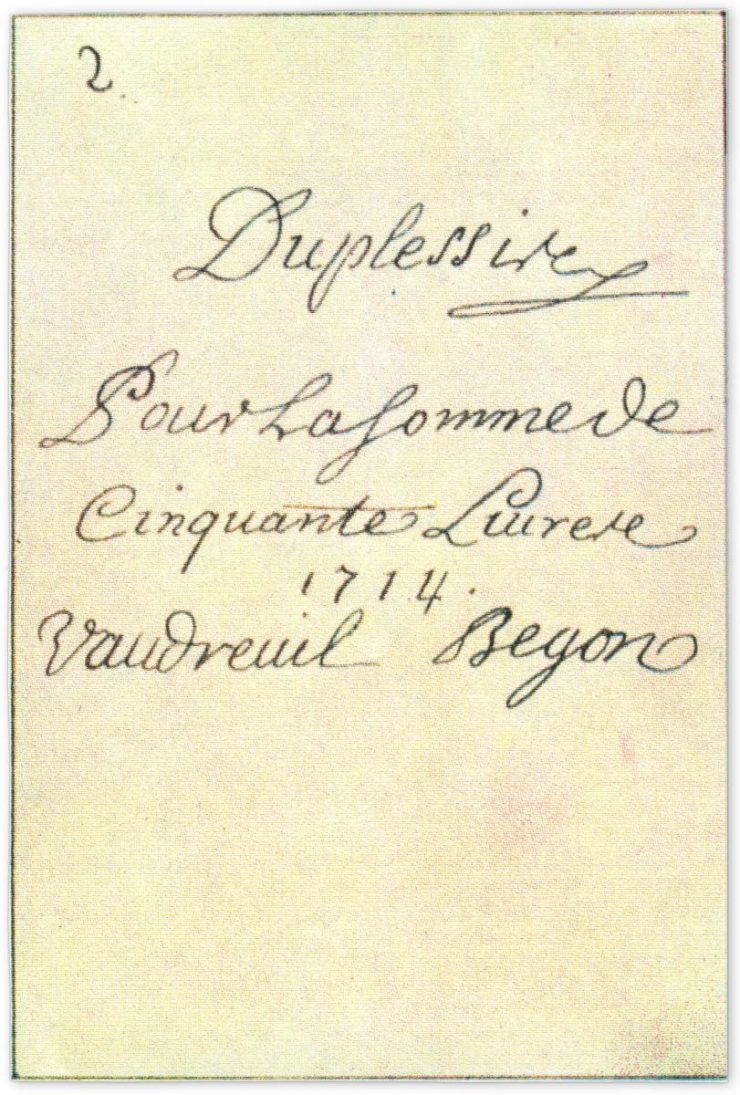 2.
Duplessis
Pour La Somme de
Cinquante Liures
1714.
Vaudreuil Begon